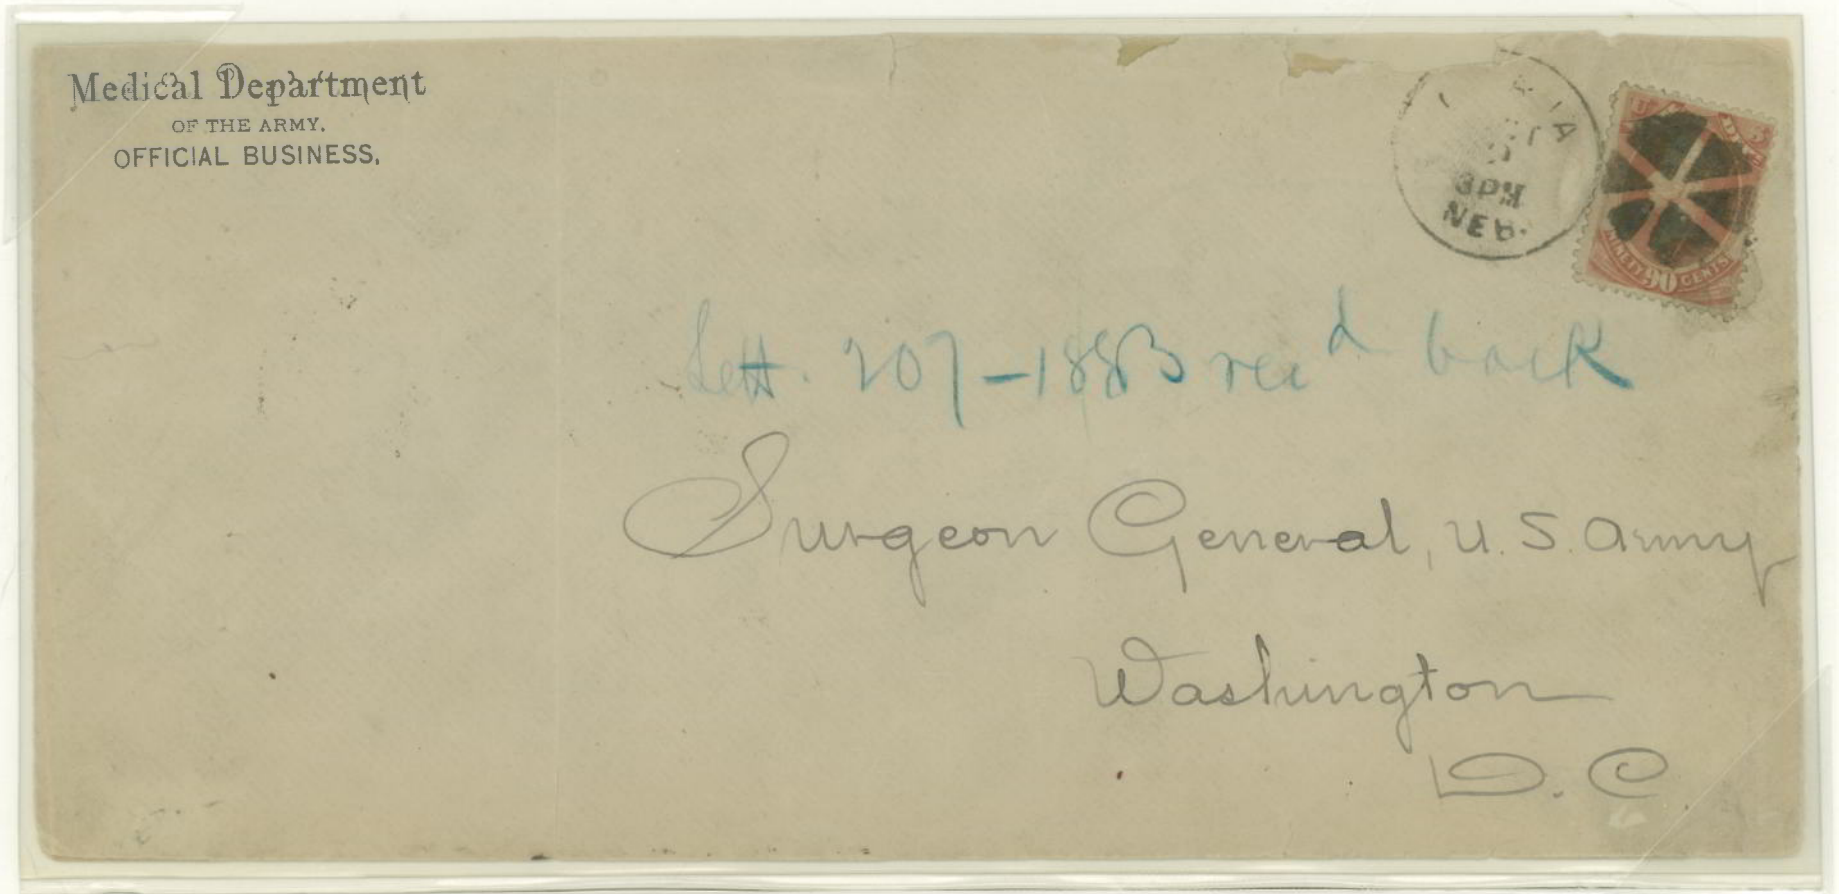 Medical Department
OF THE ARMY.
OFFICIAL BUSINESS.
3PM
NEB.
NINETY 90 CENTS
Lett. 207-1883 rec'd back
Surgeon General, U.S. Army
Washington
D.C.